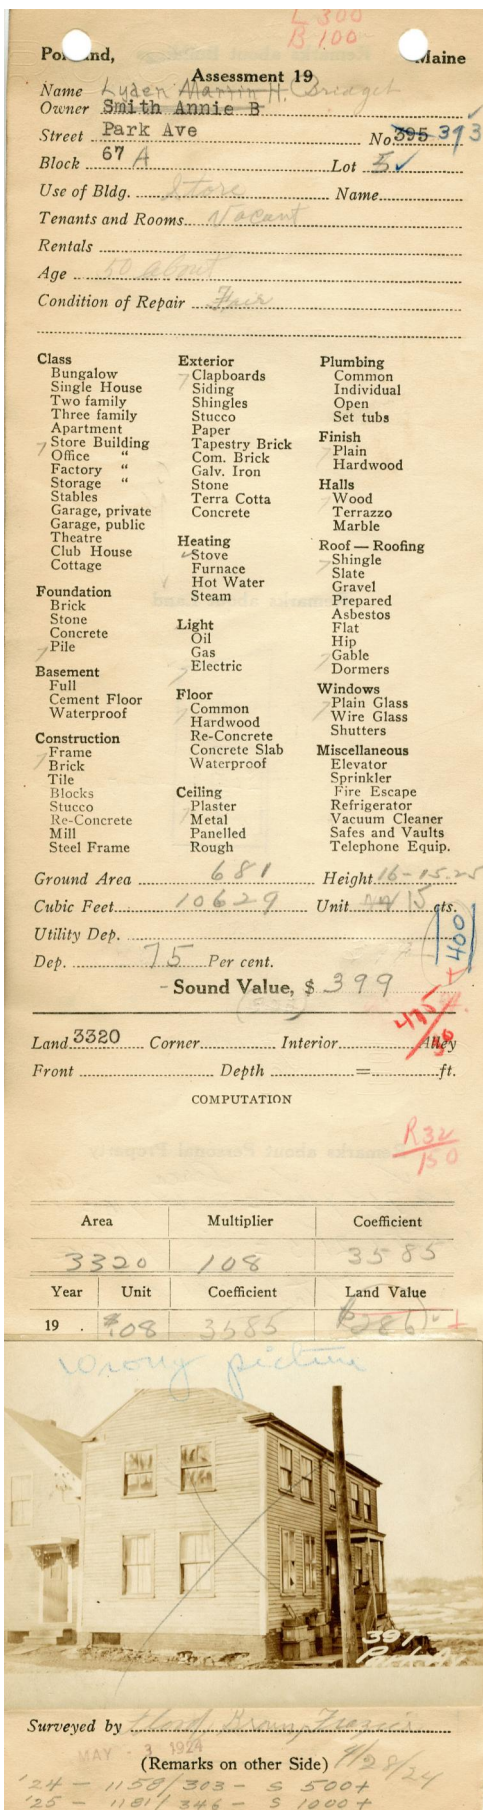 L 300
B 100
Portland, Maine
Assessment 19
Name Lyden Martin H. Bridget
Owner Smith Annie B
Street Park Ave No 395 393
Block 67 A Lot 5
Use of Bldg. Store Name
Tenants and Rooms Vacant
Rentals
Age 50 about
Condition of Repair Fair
Class
Bungalow
Single House
Two family
Three family
Apartment
Store Building
Office "
Factory "
Storage "
Stables
Garage, private
Garage, public
Theatre
Club House
Cottage
Foundation
Brick
Stone
Concrete
Pile
Basement
Full
Cement Floor
Waterproof
Construction
Frame
Brick
Tile
Blocks
Stucco
Re-Concrete
Mill
Steel Frame
Exterior
Clapboards
Siding
Shingles
Stucco
Paper
Tapestry Brick
Com. Brick
Galv. Iron
Stone
Terra Cotta
Concrete
Heating
Stove
Furnace
Hot Water
Steam
Light
Oil
Gas
Electric
Floor
Common
Hardwood
Re-Concrete
Concrete Slab
Waterproof
Ceiling
Plaster
Metal
Panelled
Rough
Plumbing
Common
Individual
Open
Set tubs
Finish
Plain
Hardwood
Halls
Wood
Terrazzo
Marble
Roof — Roofing
Shingle
Slate
Gravel
Prepared
Asbestos
Flat
Hip
Gable
Dormers
Windows
Plain Glass
Wire Glass
Shutters
Miscellaneous
Elevator
Sprinkler
Fire Escape
Refrigerator
Vacuum Cleaner
Safes and Vaults
Telephone Equip.
Ground Area 681 Height 16-15.25
Cubic Feet 10629 Unit 15 cts.
Utility Dep.
400
Dep. 75 Per cent.
Sound Value, $ 399
475
Land 3320 Corner Interior Alley
Front Depth = ft.
COMPUTATION
R32
150
Area Multiplier Coefficient
3320 108 3585
Year Unit Coefficient Land Value
19 . $.08 3585 $286
Wrong picture
397
Park Av
Surveyed by
MAY - 3 1924
(Remarks on other Side) 4/28/24
'24 - 1158/303 - S 500+
'25 - 1181/346 - S 1000+